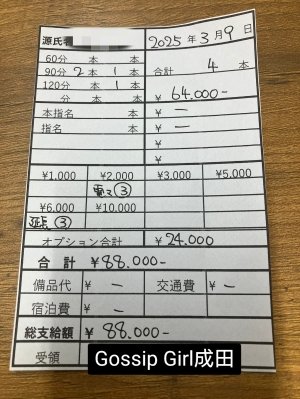 源氏名
2025年 3月 9日
60分 本 本
90分 2本 1本
合計 4 本
120分 本 1本
分 本 本
¥ 64.000-
本指名 ¥ ー
指名 ¥ ー
¥
¥
¥1,000 ¥2,000 ¥3,000 ¥5,000
電マ③
¥6,000 ¥10,000
延長③
オプション合計 ¥24.000
合 計 ¥88.000-
備品代 ¥ ー 交通費 ¥ ー
宿泊費 ¥ ー
総支給額 ¥ 88.000-
受領
Gossip Girl成田